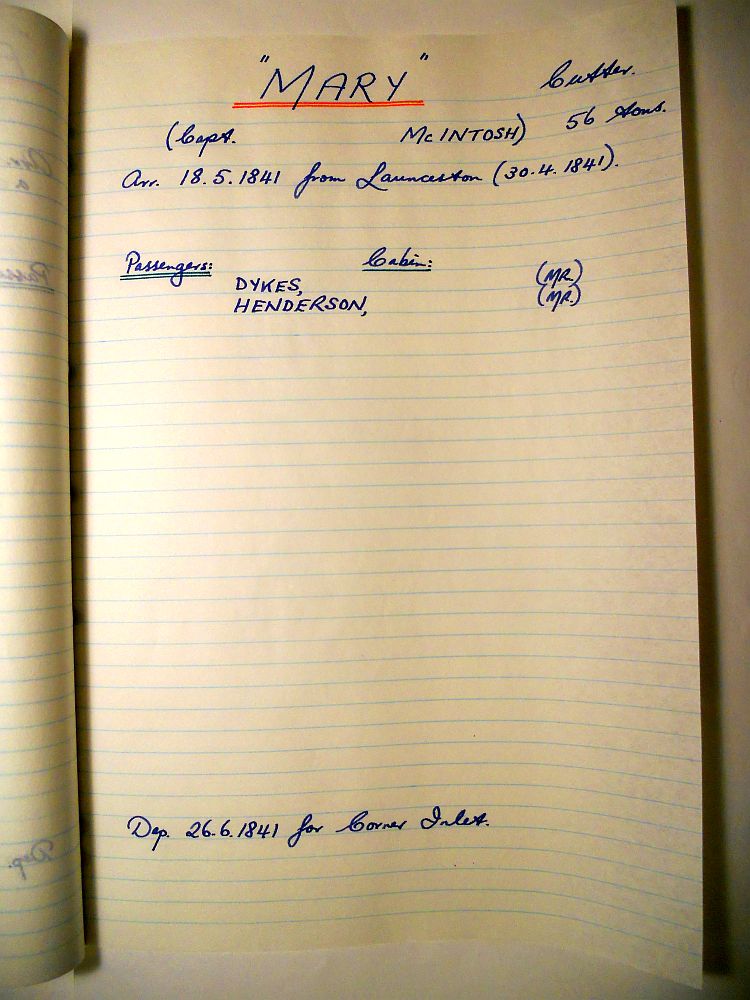 "MARY" Cutter.
(Capt. McINTOSH) 56 tons.
Arr. 18.5.1841 from Launceston (30.4.1841).
Passengers: Cabin:
DYKES, (MR.)
HENDERSON, (MR.)
Dep. 26.6.1841 for Corner Inlet.